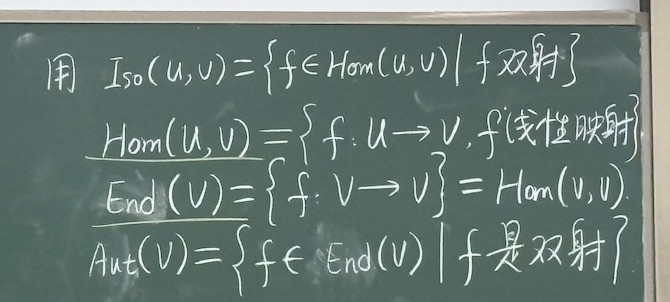 用 Iso(U,V)={f∈Hom(U,V)|f双射}
Hom(U,V)={f:U→V,f线性映射}
End(V)={f:V→V}=Hom(V,V).
Aut(V)={f∈End(V)|f是双射}